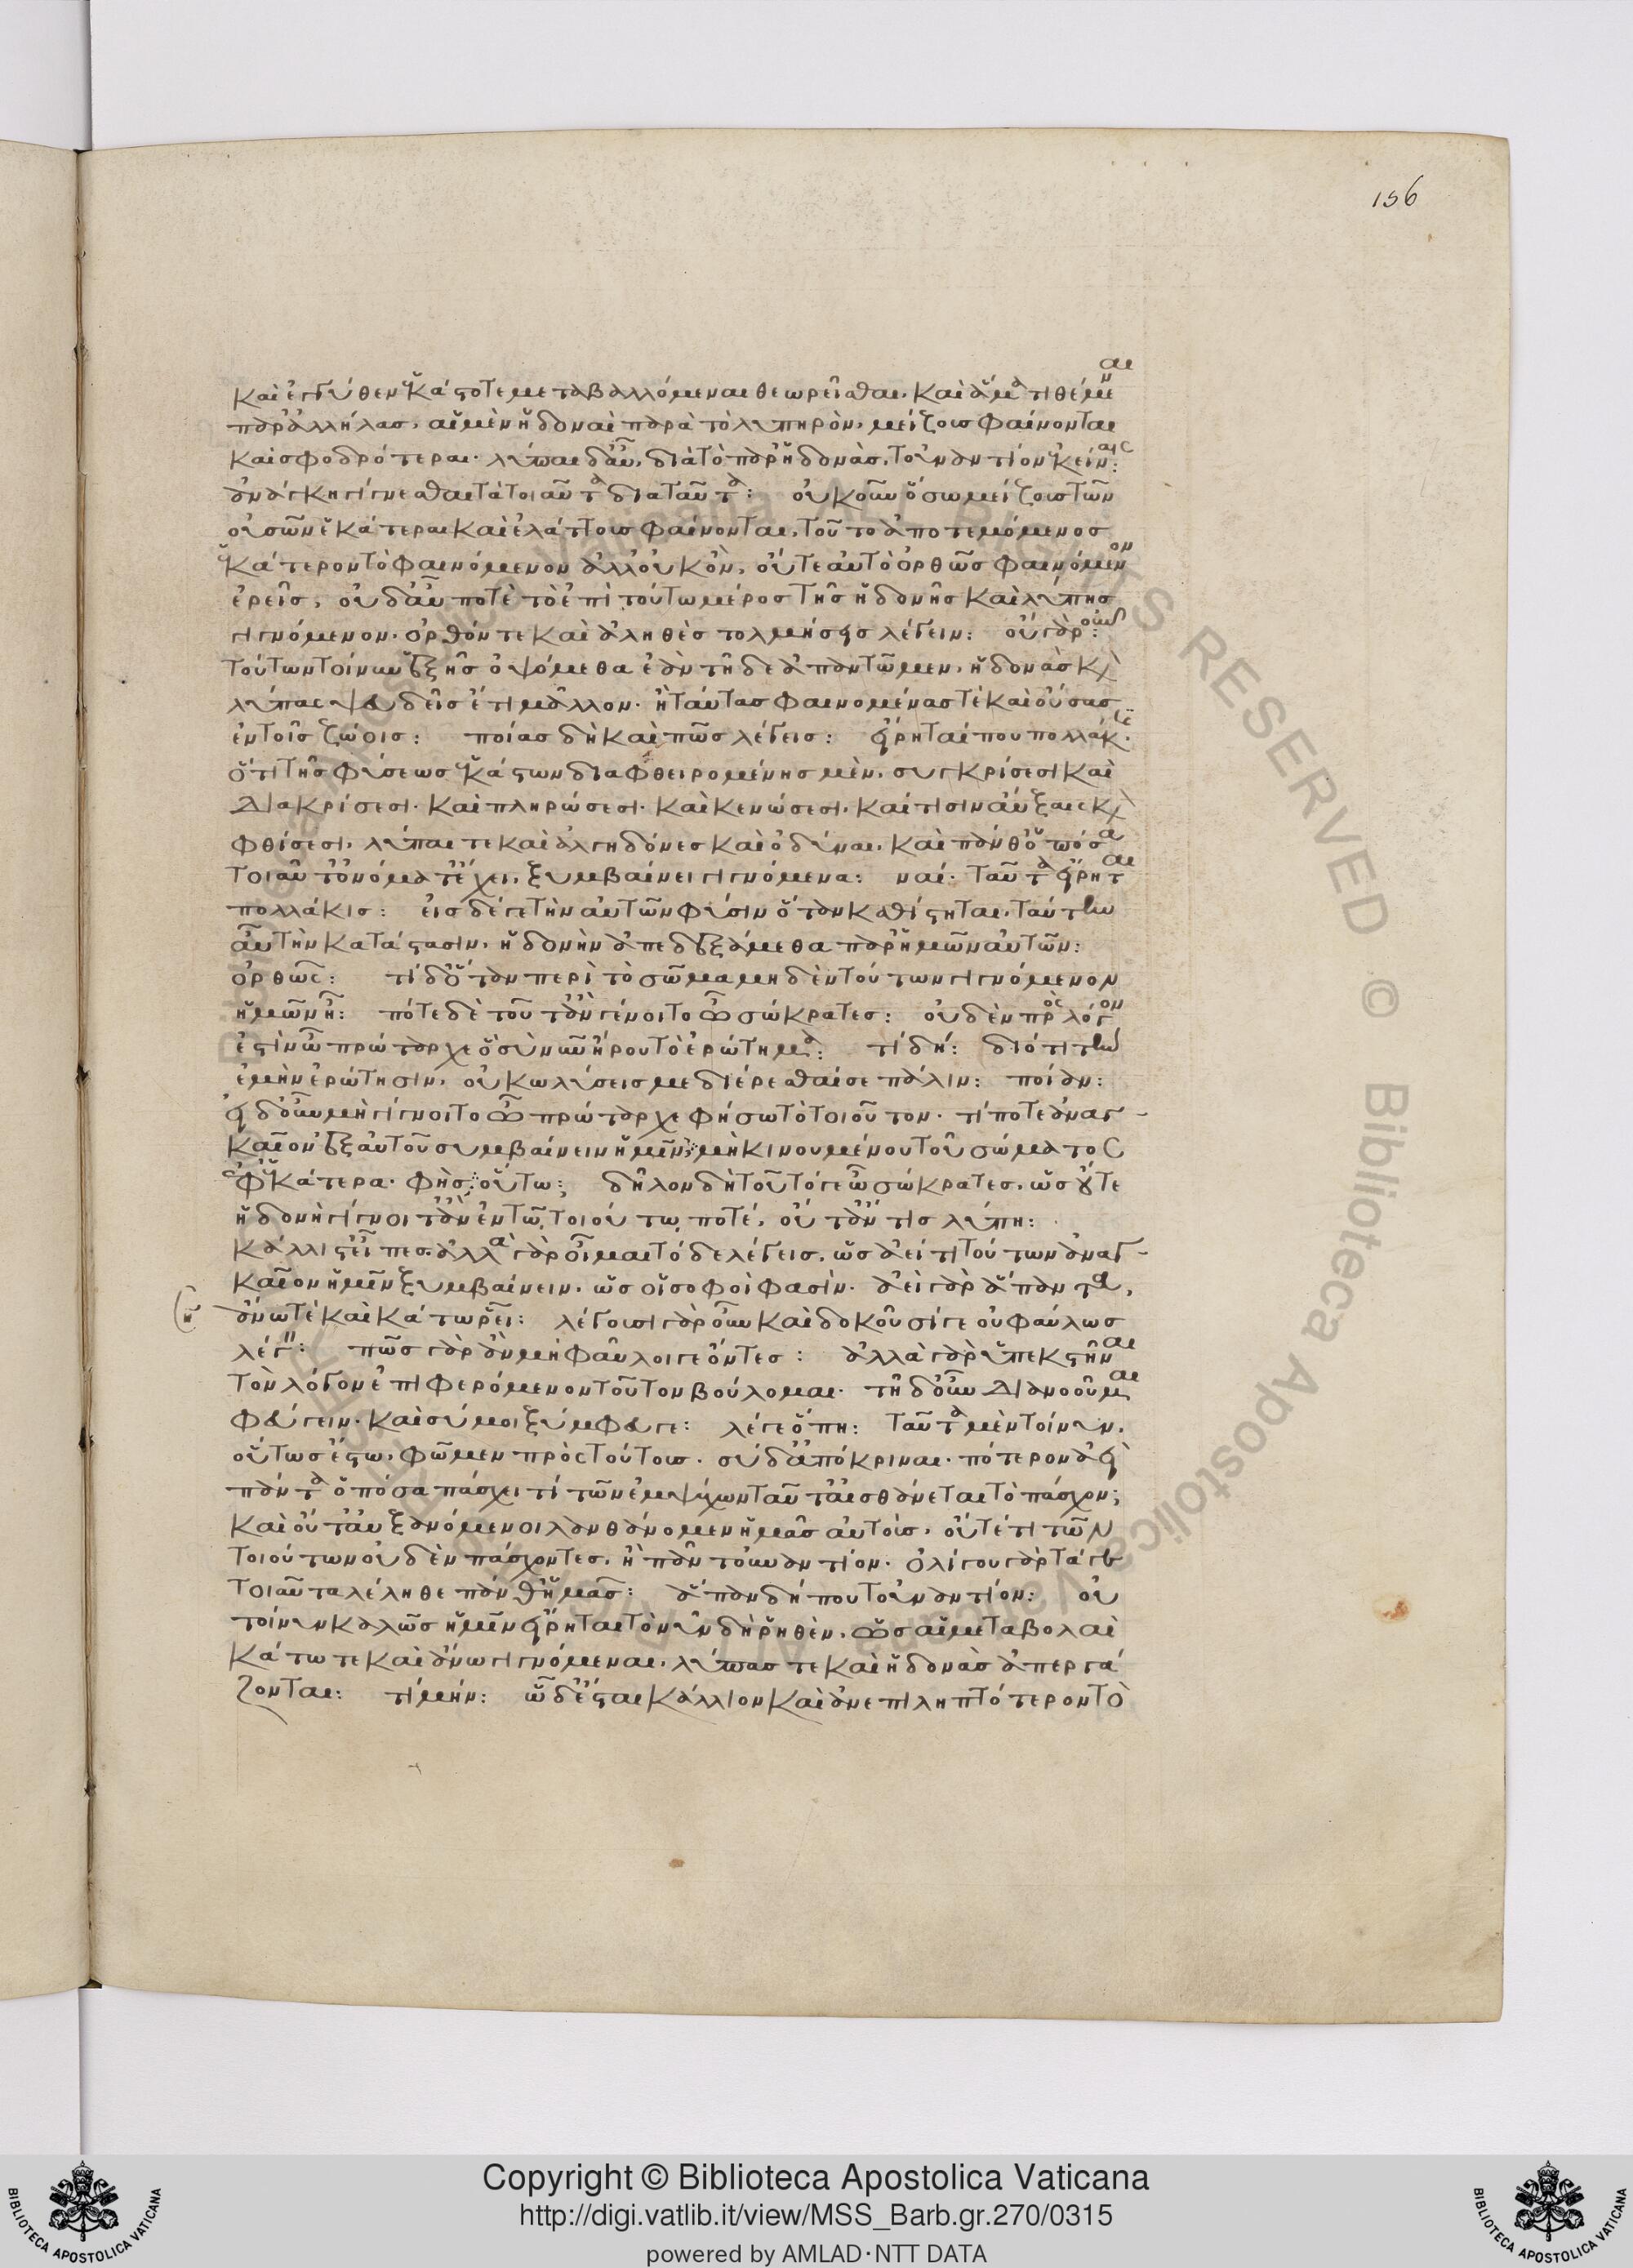 156
καὶ ἐγγύθεν ἑκάστοτε μεταβαλλόμεναι θεωρεῖσθαι, καὶ ἅμα τιθέμεναι
παρ' ἀλλήλας, αἱ μὲν ἡδοναὶ παρὰ τὸ λυπηρὸν, μείζους φαίνονται
καὶ σφοδρότεραι· λύπαι δ' αὖ, διὰ τὸ παρ' ἡδονὰς, τοὐναντίον ἐκείναις:
ἀνάγκη γίγνεσθαι τὰ τοιαῦτα διὰ ταῦτα: οὐκοῦν ὅσω μείζους τῶν
οὐσῶν ἑκάτεραι καὶ ἐλάττους φαίνονται, τοῦτο ἀποτεμόμενος
ἑκάτερον τὸ φαινόμενον ἀλλ' οὐκ ὂν, οὔτε αὐτὸ ὀρθῶς φαινόμενον
ἐρεῖς, οὐδ' αὖ ποτὲ τὸ ἐπὶ τούτω μέρος τῆς ἡδονῆς καὶ λύπης
γιγνόμενον, ὀρθόν τε καὶ ἀληθὲς τολμήσεις λέγειν: οὐ γὰρ οὖν:
τούτων τοίνυν ἑξῆς ὀψόμεθα ἐὰν τῆδε ἀπαντῶμεν, ἡδονὰς καὶ
λύπας ψευδεῖς ἔτι μᾶλλον· ἢ ταύτας φαινομένας τὲ καὶ οὔσας
ἐν τοῖς ζώοις: ποίας δὴ καὶ πῶς λέγεις: εἴρηταί που πολλάκις
ὅτι τῆς φύσεως ἑκάστων διαφθειρομένης μὲν, συγκρίσεσι καὶ
διακρίσεσι· καὶ πληρώσεσι· καὶ κενώσεσι, καί τισιν αὔξαις καὶ
φθίσεσι, λύπαι τε καὶ ἀλγηδόνες καὶ ὀδύναι, καὶ πάνθ' ὁπόσα
τοιαῦτ' ὀνόματ' ἔχει, ξυμβαίνει γιγνόμενα: ναί· ταῦτα εἴρηται
πολλάκις: εἰς δέ γε τὴν αὐτῶν φύσιν ὅταν καθίστηται, ταύτην
αὖ τὴν κατάστασιν, ἡδονὴν ἀπεδεξάμεθα παρ' ἡμῶν αὐτῶν:
ὀρθῶς: τί δ' ὅταν περὶ τὸ σῶμα μηδὲν τούτων γιγνόμενον
ἡμῶν ἦ: πότε δὲ τοῦτ' ἂν γένοιτο ὦ σώκρατες: οὐδὲν πρὸς λόγον
ἐστὶν ὦ πρώταρχε ὃ σὺ νῦν ἤρου τὸ ἐρώτημα: τί δή: διότι τὴν
ἐμὴν ἐρώτησιν, οὐ κωλύσεις με διέρεσθαί σε πάλιν: ποίαν:
εἰ δ' οὖν μὴ γίγνοιτο ὦ πρώταρχε φήσω τὸ τοιοῦτον· τί ποτε ἀναγ-
καῖον ἐξ αὐτοῦ συμβαίνειν ἡμῖν; μὴ κινουμένου τοῦ σώματος
ἐφ' ἑκάτερα· φὴς: οὕτω: δῆλον δὴ τοῦτό γε ὦ σώκρατες, ὡς οὔτε
ἡδονὴ γίγνοιτ' ἂν ἐν τῶ τοιούτω ποτέ, οὔτ' ἄν τις λύπη:
κάλλιστ' εἶπες· ἀλλὰ γὰρ οἶμαι τόδε λέγεις, ὡς ἀεί τι τούτων ἀναγ-
καῖον ἡμῖν ξυμβαίνειν, ὡς οἱ σοφοί φασίν· ἀεὶ γὰρ ἅπαντα,
ἄνω τὲ καὶ κάτω ῥεῖ: λέγουσι γὰρ οὖν καὶ δοκοῦσί γε οὐ φαύλως
λέγειν: πῶς γὰρ ἂν μὴ φαῦλοί γε ὄντες: ἀλλὰ γὰρ ὑπεκστῆναι
τὸν λόγον ἐπιφερόμενον τοῦτον βούλομαι· τῆδ' οὖν διανοοῦμαι
φεύγειν· καὶ σύ μοι ξύμφευγε: λέγε ὅπη: ταῦτα μὲν τοίνυν,
οὕτως ἔστω, φῶμεν πρὸς τούτους· σὺ δ' ἀπόκριναι· πότερον ἀεὶ
πάντα ὁπόσα πάσχει τί τῶν ἐμψύχων ταῦτ' αἰσθάνεται τὸ πάσχον;
καὶ οὔτ' αὐξανόμενοι λανθάνομεν ἡμᾶς αὐτούς, οὔτέ τι τῶν
τοιούτων οὐδὲν πάσχοντες, ἢ πᾶν τοὐναντίον· ὀλίγου γὰρ τά γε
τοιαῦτα λέληθε πάνθ' ἡμᾶς: ἅπαν δή που τοὐναντίον: οὐ
τοίνυν καλῶς ἡμῖν εἴρηται τὸ νῦν δὴ ῥηθὲν, ὡς αἱ μεταβολαὶ
κάτω τε καὶ ἄνω γιγνόμεναι, λύπας τε καὶ ἡδονὰς ἀπεργά
ζονται: τί μήν: ὧδ' ἔσται κάλλιον καὶ ἀνεπιληπτότερον τὸ
Copyright © Biblioteca Apostolica Vaticana
http://digi.vatlib.it/view/MSS_Barb.gr.270/0315
powered by AMLAD·NTT DATA
BIBLIOTECA APOSTOLICA VATICANA
BIBLIOTECA APOSTOLICA VATICANA